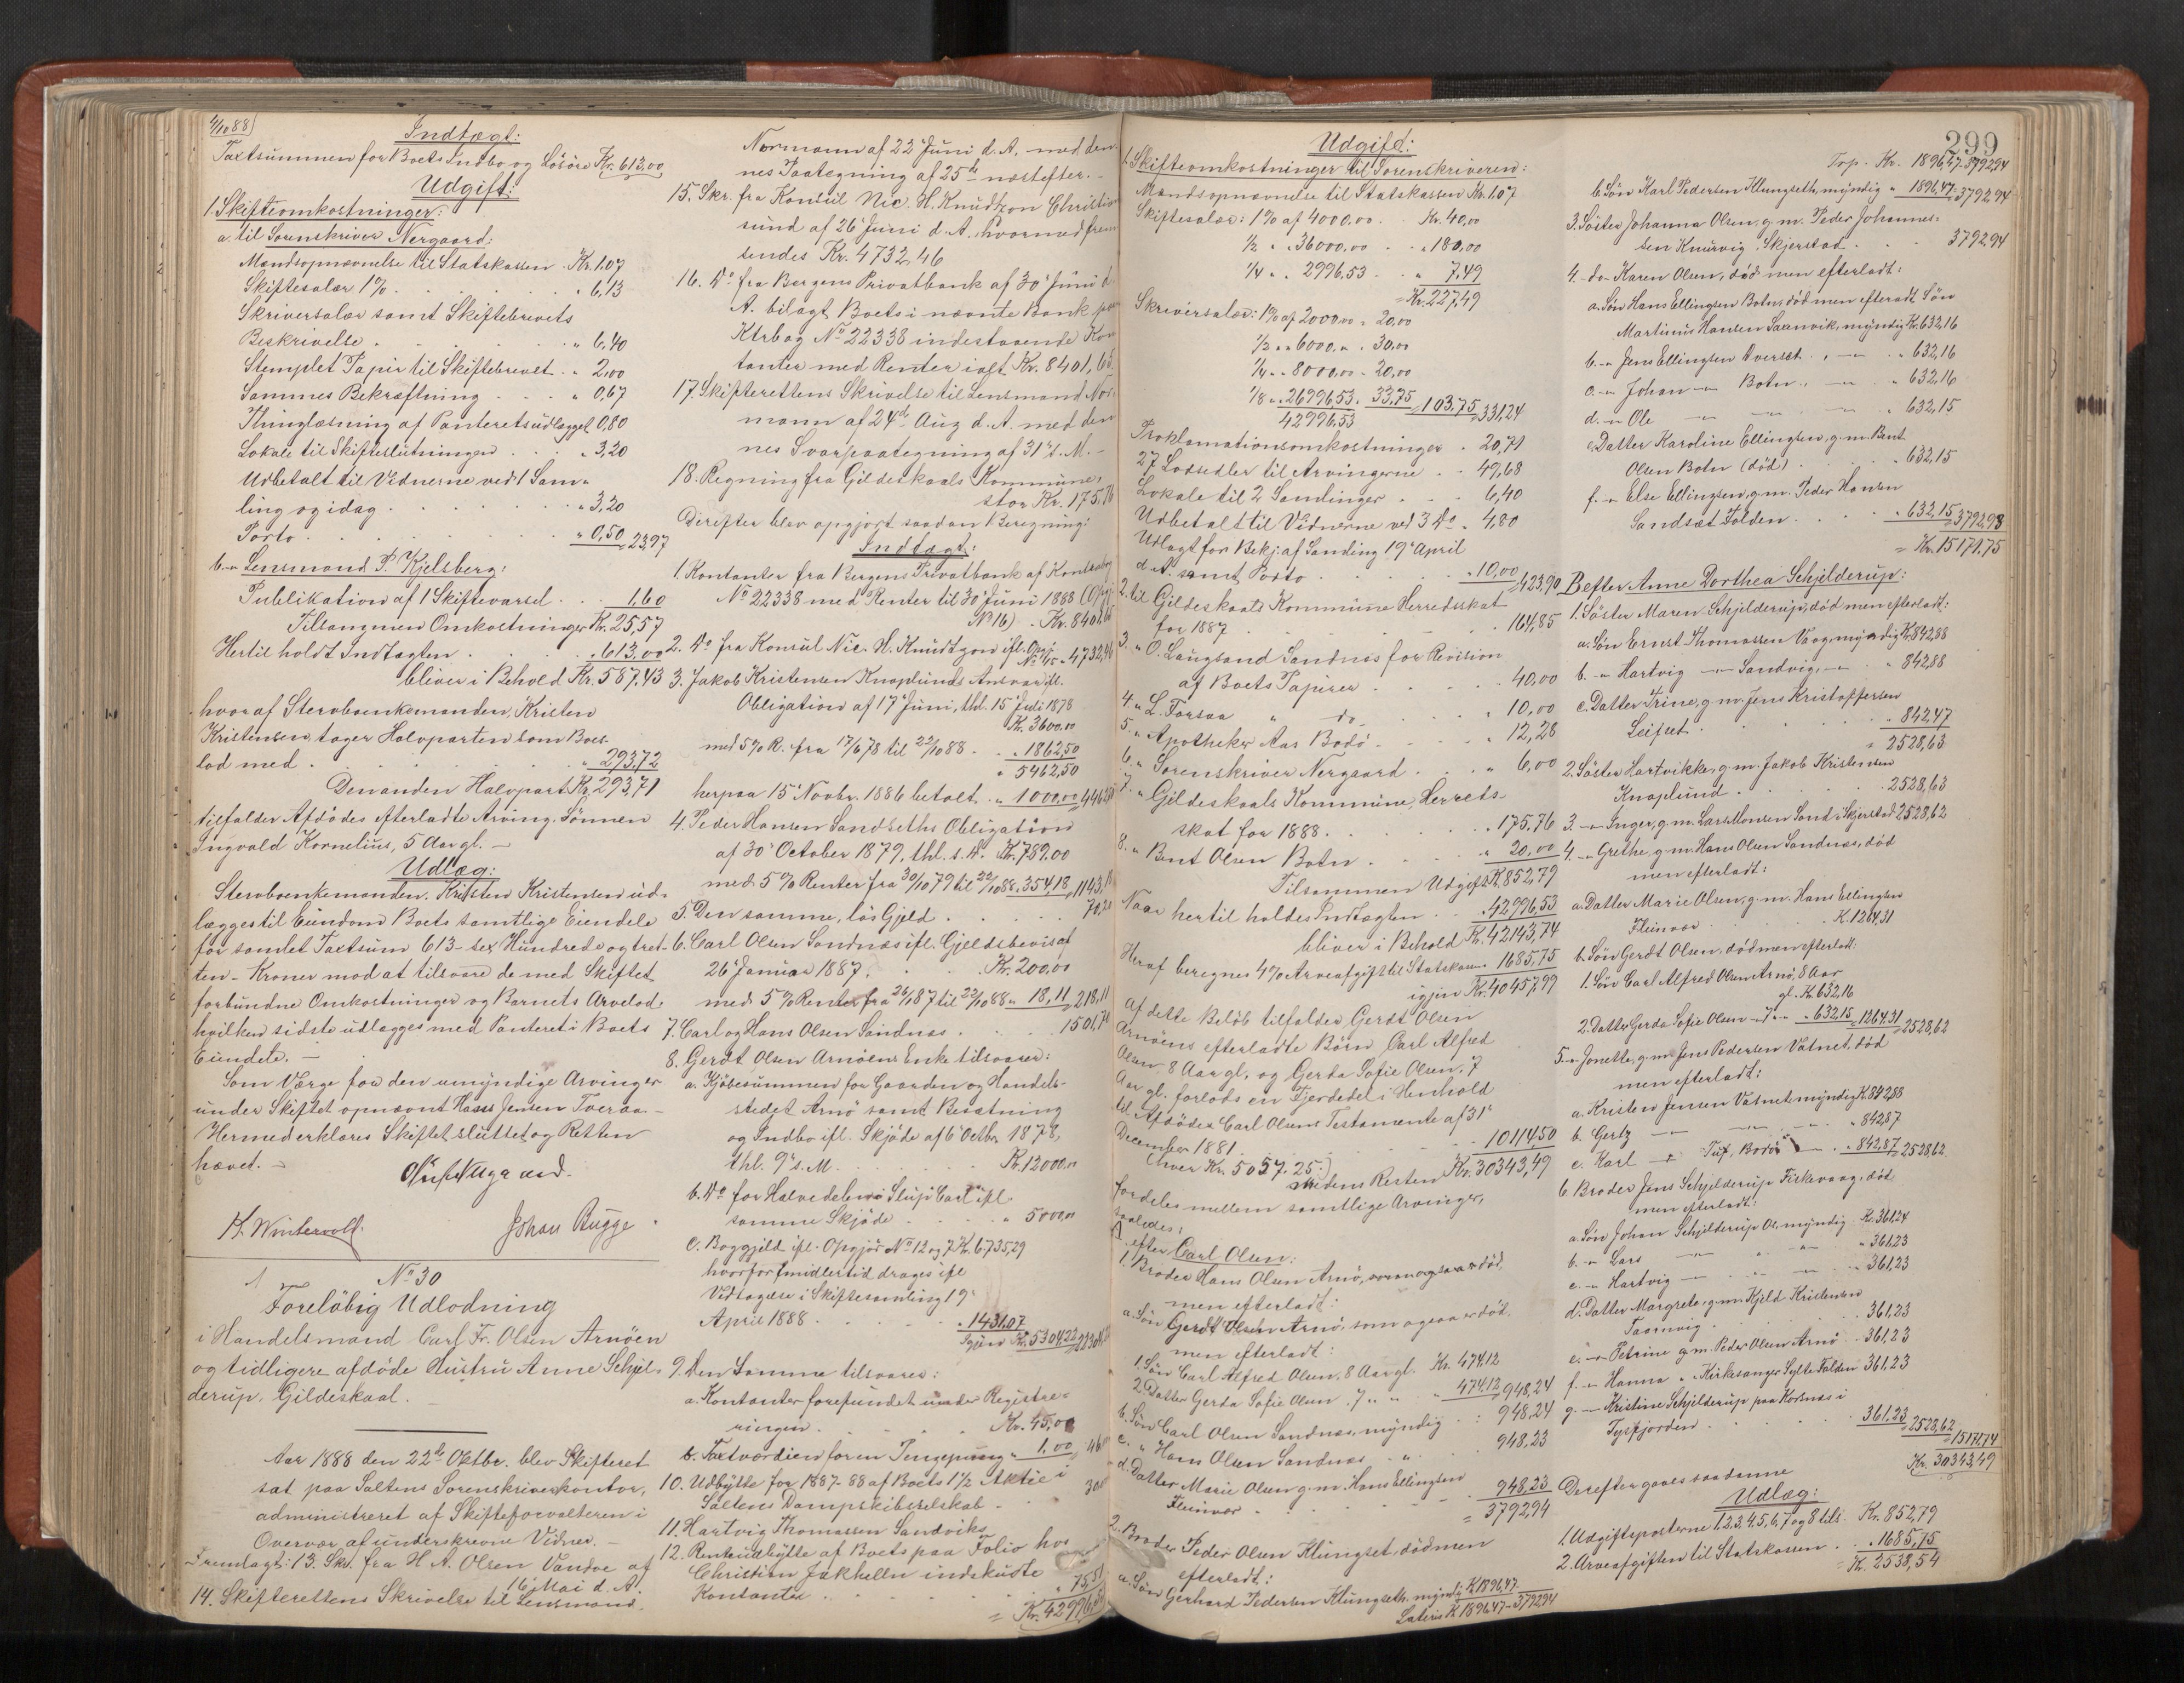 4/10 88
Indtægt:
Taxtsummen for Boets Indbo og Lösöre Kr. 613,00
Udgift:
1. Skifteomkostninger:
a. til Sorenskriver Nergaard:
Mandsopnævnelse til Statskassen Kr. 1.07
Skiftesalær 1% . . . „ 6,13
Skriversalær samt Skiftebrevets
Beskrivelse . . . „ 6,40
Stemplet Papir til Skiftebrevet . „ 2,00
Sammes Bekræftning . . . „ 0,67
Thinglæsning af Panteretsudlægget 0,80
Lokale til Skifteslutningen . . „ 3,20
Udbetalt til Vidnerne ved 1 Sam-
ling og idag . . . „ 3,20
Porto . . . „ 0,50 = 23,97
b. „ Lensmand P. Kjelsberg:
Publikation af 1 Skiftevarsel . . 1,60
Tilsammen Omkostninger Kr. 25,57
Hertil holdt Indtægten . . . „ 613,00
bliver i Behold Kr. 587,43
hvoraf Stervboenkemanden, Kristen
Kristensen, tager Halvparten som Boes-
lod med . . . „ 293,72
Den anden Halvpart Kr. 293,71
tilfalder Afdödes efterladte Arving. Sönnen
Ingvald Kornelius, 5 Aar gl. —
Udlæg:
Stervboenkemanden Kristen Kristensen ud-
lægges til Eiendom Boets samtlige Eiendele
for samlet Taxtsum 613 - sex Hundrede og tret-
ten - Kroner mod at tilsvare de med Skiftet
forbundne Omkostninger og Barnets Arvelod,
hvilken sidste udlægges med Panteret i Boets
Eiendele. —
Som Værge for den umyndige Arving er
under Skiftet opnævnt Hans Jensen Tveraa —
Hermed erklæres Skiftet sluttet og Retten
hævet. —
K. Wintervold. Johan Bugge
No 30
Foreløbig Udlodning
i Handelsmand Carl Fr. Olsen Arnøen
og tidligere afdøde Hustru Anne Schjel-
derup, Gildeskaal.
Aar 1888 den 22de Oktbr. blev Skifteret
sat paa Saltens Sorenskriverkontor,
administreret af Skifteforvalteren i
Overvær af underskrevne Vidner. —
Fremlagt: 13. Skr. fra H. A. Olsen Vandve af
16 Mai d. A.
14. Skifterettens Skrivelse til Lensmand
Normann af 22 Juni d. A. med den-
nes Paategning af 25de næstefter. —
15. Skr. fra Konsul Nic. H. Knudtzon Christian
sund af 26 Juni d. A. hvormed frem
sendes Kr. 4732,46
16. Do fra Bergens Privatbank af 30 Juni d.
A. bilagt Boets i nævnte Bank paa
Ktrbog No 22338 indestaaende Kon
tanter med Renter ialt Kr. 8401,65
17. Skifterettens Skrivelse til Lensmand Nor-
mann af 24de Aug d. A. med den
nes Svarpaategning af 31 s. M. —
18. Regning fra Gildeskaals Kommune,
stor Kr. 175,76
Derefter blev opgjort saadan Beregning:
Indtægt:
1. Kontanter fra Bergens Privatbank af Kontrabog
No 22338 med Renter til 30 Juni 1888 (Opgj
No 16) . Kr. 8401,65
2. Do fra Konsul Nic. H. Knudtzon ifl. Opgj.
No 15 „ 4732,46
3. Jakob Kristensen Knaplunds Ansvar ifl.
Obligation af 17 Juni, thl. 15 Juli 1878
Kr. 3600.00
med 5% R. fra 17/6 78 til 22/10 88 . . „ 1862,50
„ 5462,50
herpaa 15 Novbr. 1886 betalt . „ 1000,00 = 4462,50
4. Peder Hansen Sandseths Obligation
af 30 October 1879, thl. s. D. Kr. 789.00
med 5% Renter fra 30/10 79 til 22/10 88 „ 354,18 = 1143,18
5. Den samme, lös Gjeld . . .
6. Carl Olsen Sandnæs ifl. Gjeldsbevis af
26 Januar 1887. . . . Kr. 200,00
med 5% Renter fra 26/1 87 til 22/10 88 „ 18,11 = 218,11
7. Carl og Hans Olsen Sandnæs . . .
8. Gerdt Olsen Arnøens Enke tilsvarer:
a. Kjöbesummen for Gaarden og Handels-
stedet Arnö samt Besætning
og Indbo ifl. Skjöde af 6 Octbr 1878,
thl. 9 s. M . . . Kr. 12000,00
b. Do for Halvedelen i Slup Carl ifl.
samme Skjöde . . . „ 5000,00
c. Boggjeld ifl. Opgjör No 12 og 7 Kr. 6735,29
hvorfor imidlertid drages ifl
Vedtagelse i Skiftesamling 19
April 1888 . . . „ 1431.07
Igjen Kr. 5304,22
9. Den Samme tilsvarer:
a. Kontanter forefundet under Registre-
ringen . . . Kr. 45,00
b. Taxtværdien for en Pengepung „ 1,00 = 46,00
10. Udbytte for 1887-88 af Boets 1 1/2 Aktie i
Saltens Dampskibsselskab .
11. Hartvig Thomassen Sandvik
12. Renteudbytte af Boets paa Folio hos
Christian Jakhelln indskudte
Kontanter . . .
= Kr. 42996,53
Udgift:
1. Skifteomkostninger til Sorenskriveren:
Mandsopnævnelse til Statskassen Kr. 1.07
Skiftesalær: 1% af 4000.00 . . Kr. 40,00
1/2 „ „ 36000,00 . . „ 180,00
1/4 „ „ 2996,53 . . „ 7,49
= Kr. 227,49
Skriversalær: 1% af 2000,00 „ 20,00
1/2 „ „ 6000, „ . 30,00
1/4 „ „ 8000,00 . 20,00
1/8 „ „ 26996.53 . 33,75 = 103.75 = 331,24
42996,53
Proklamationsomkostninger . 20,71
27 Lodsedler til Arvingerne . . 49,68
Lokale til 2 Samlinger . . . 6,40
Udbetalt til Vidnerne ved 3 Do . 4,80
Udlagt for Bekj. af Samling 19 April
d. A. samt Porto . . . „ 10,00 = 423,90
2. til Gildeskaals Kommune Herredsskat
for 1887 . . . 164,85
3. „ O. Laugsand Sandnes for Revision
af Boets Papirer . . . 40,00
4. „ L. Forsaa „ do . . . „ 10,00
5. „ Apotheker Aas Bodö . . . „ 12,28
6. „ Sorenskriver Nergaard . . . „ 6,00
7. „ Gildeskaals Kommune, Herreds-
skat for 1888 . . . „ 175.76
8. „ Bent Olsen Botn . . . „ 20,00
Tilsammen Udgift Kr. 852,79
Naar hertil holdes Indtægten . . „ 42996,53
bliver i Behold Kr. 42143,74
Heraf beregnes 4% Arveafgift til Statskassen „ 1685,75
igjen Kr. 40457,99
Af dette Beløb tilfalder Gerdt Olsen
Arnøens efterladte Børn Carl Alfred
Olsen 8 Aar gl, og Gerda Sofie Olsen, 7
Aar gl. forlods en Fjerdedel i Henhold
til Afdødes Carl Olsens Testamente af 31
December 1881 . . . 10114,50
(hver Kr. 5057.25.)
medens Resten Kr. 30343,49
fordeles mellem samtlige Arvinger,
saaledes:
A efter Carl Olsen:
1. Broder Hans Olsen Arnö, som ogsaa er död,
men efterladt:
a. Sön Gerdt Olsen Arnö, som ogsaa er död.
men efterladt:
1. Sön Carl Alfred Olsen, 8 Aar gl. Kr. 474.12
2. Datter Gerda Sofie Olsen . 7 „ „ 474.12 = 948,24
b. Sön Carl Olsen Sandnæs, myndig . : 948,24
c. „ Hans Olsen Sandnæs . „ . 948,23
d. Datter Marie Olsen g. m. Hans Ellingsen
Fleinvær . . . 948,23
= 3792,94
2. Broder Peder Olsen Klungset, död men
efterladt:
a. Sön Gerhard Pedersen Klungseth, myndig Kr 1896,47
Lateris Kr. 1896.47 - 3792.94
299
Trp. Kr. 1896,47 - 3792,94
b. Sön Karl Pedersen Klungseth, myndig „ 1896,47 = 3792,94
3. Söster Johanna Olsen, g. m. Peder Johannes-
sen Knurvig, Skjerstad . . . 3792,94
4. „ do „ Karen Olsen, död men efterladt:
a. Sön Hans Ellingsen Botn, död men efterladt Sön
Martinus Hansen Saanvik, myndig Kr. 632,16
b. „ Jens Ellingsen Kverset . „ — „ . „ 632,16
c. „ Johan — „ — Botn . „ — „ . „ 632,16
d. „ Ole — „ — — „ — „ 632,15
e. Datter Karoline Ellingsen, g. m. Bent
Olsen Botn (död) . . . „ 632,15
f. „ Else Ellingsen, g. m. Peder Hansen
Sandsæt Folden . . . „ 632,15 = 3792,93
= Kr. 15171.75
B efter Anne Dorthea Schjelderup:
1. Söster Maren Schjelderup, död men efterladt:
a. Sön Ernst Thomassen Vaag, myndig Kr. 842,88
b. „ Hartvig — „ — Sandvig, — „ . „ 842,88
c. Datter Trine, g. m. Jens Kristoffersen
Leifset . . . „ 842,47
„ 2528,63
2. Söster Hartvikke, g. m. Jakob Kristensen
Knaplund . . . 2528,63
3. — „ Inger, g. m. Lars Monsen Sand i Skjerstad 2528,62
4. — „ Grethe, g. m. Hans Olsen Sandnæs, död
men efterladt:
a. Datter Marie Olsen, g. m. Hans Ellingsen
Fleinvær . . . K. 1264,31
b. Sön Gerdt Olsen, död men efterladt:
1. Sön Carl Alfred Olsen Arnö, 8 Aar
gl. Kr. 632,16
2. Datter Gerda Sofie Olsen „ 7 „ „ 632,15 = 1264.31 = 2528,62
5. „ Jonette, g. m. Jens Pedersen Vatnet, död
men efterladt:
a. Kristen Jensen Vatnet, myndig Kr. 842,88
b. Gertz — „ — — „ — „ 842,87
c. Karl — „ — Tuf, Bodö — „ 842,87 = 2528,62
6. Broder Jens Schjelderup Firkevaag, död
men efterladt:
a. Sön Johan Schjelderup Os, myndig . Kr. 361,24
b. „ Lars — „ — „ — „ „ 361,23
c. „ Hartvig — „ — . . — „ — „ 361,23
d. Datter Margrete, g. m. Kjeld Kristensen
. . . 361,23
e. — „ Petrine g. m. Peder Olsen Arnö . „ 361,23
f. — „ Hanna „ . Kirkesanger Sylte Folden 361,23
g. — „ Kristine Schjelderup paa Korsnæs i
Tysfjorden . . . 361,23 = 2528,62
= 15171,74
Kr. 30343,49
Derefter gaves saadanne
Udlæg:
1. Udgiftsposterne 1, 2, 3, 4, 5, 6, 7 og 8 tils . Kr. 852,79
2. Arveafgiften til Statskassen . . „ 1685,75
= Kr. 2538,54